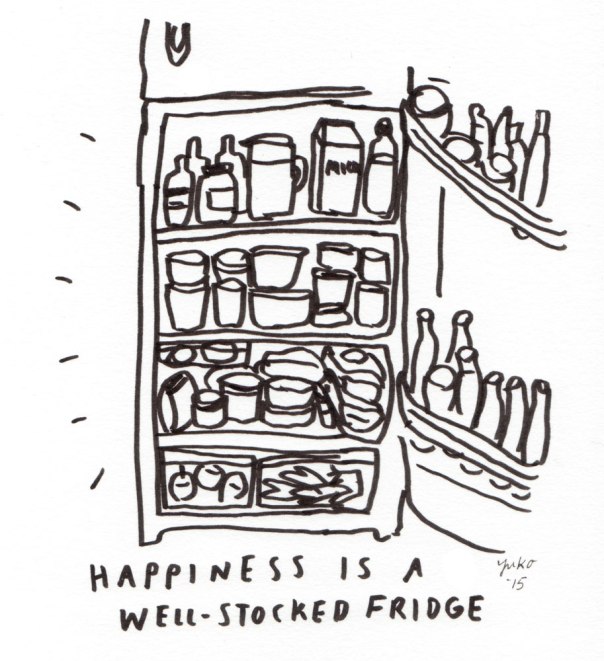 MILK
HAPPINESS IS A
WELL-STOCKED FRIDGE
yuko
'15